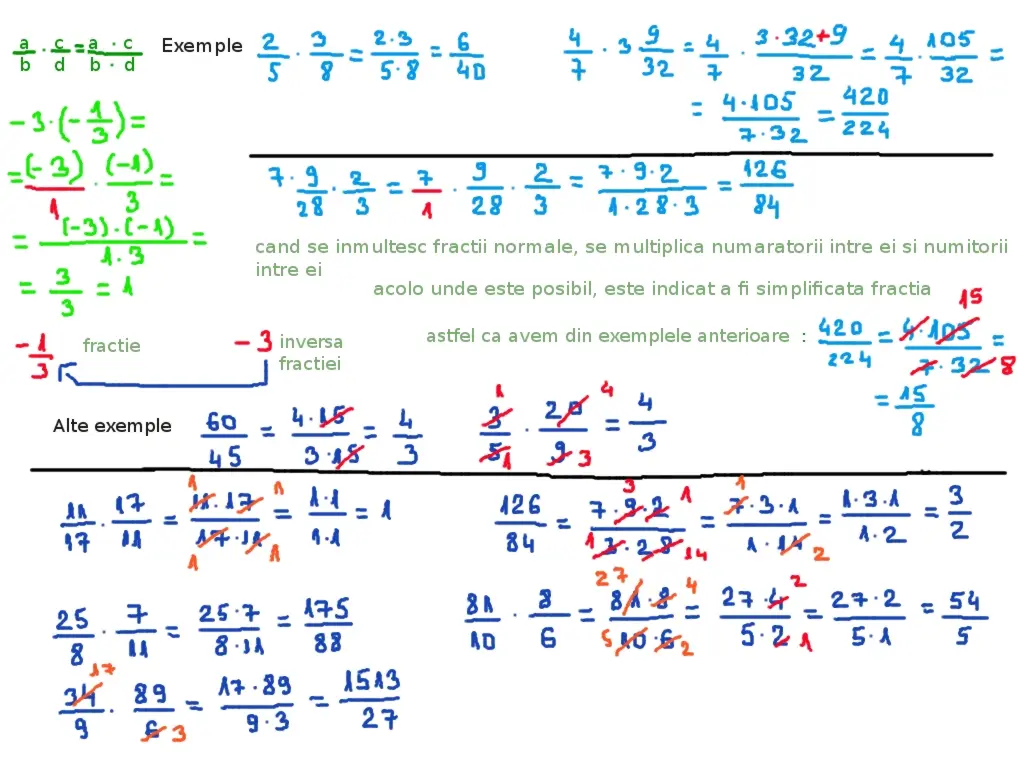 a/b · c/d = a · c / b · d Exemple 2/5 · 3/8 = 2·3/5·8 = 6/40
4/7 · 3 9/32 = 4/7 · 3·32+9/32 = 4/7 · 105/32 =
= 4·105/7·32 = 420/224
-3·(-1/3) =
= (-3)/1 · (-1)/3 =
= (-3)·(-1)/1·3 =
= 3/3 = 1
7·9/28 · 2/3 = 7/1 · 9/28 · 2/3 = 7·9·2/1·28·3 = 126/84
cand se inmultesc fractii normale, se multiplica numaratorii intre ei si numitorii
intre ei
acolo unde este posibil, este indicat a fi simplificata fractia
-1/3 fractie -3 inversa
fractiei
astfel ca avem din exemplele anterioare : 420/224 = 4·105 15/7·32 8 =
= 15/8
Alte exemple 60/45 = 4·15/3·15 = 4/3 3 1/5 1 · 20 4/9 3 = 4/3
11/17 · 17/11 = 1 11·17 1/1 17·11 1 = 1·1/1·1 = 1
126/84 = 7·9 3·2 1/1 3·28 14 = 1 7·3·1/1·14 2 = 1·3·1/1·2 = 3/2
25/8 · 7/11 = 25·7/8·11 = 175/88
81/10 · 8/6 = 27 81·8 4/5 10·6 2 = 27·4 2/5·2 1 = 27·2/5·1 = 54/5
34 17/9 · 89/6 3 = 17·89/9·3 = 1513/27